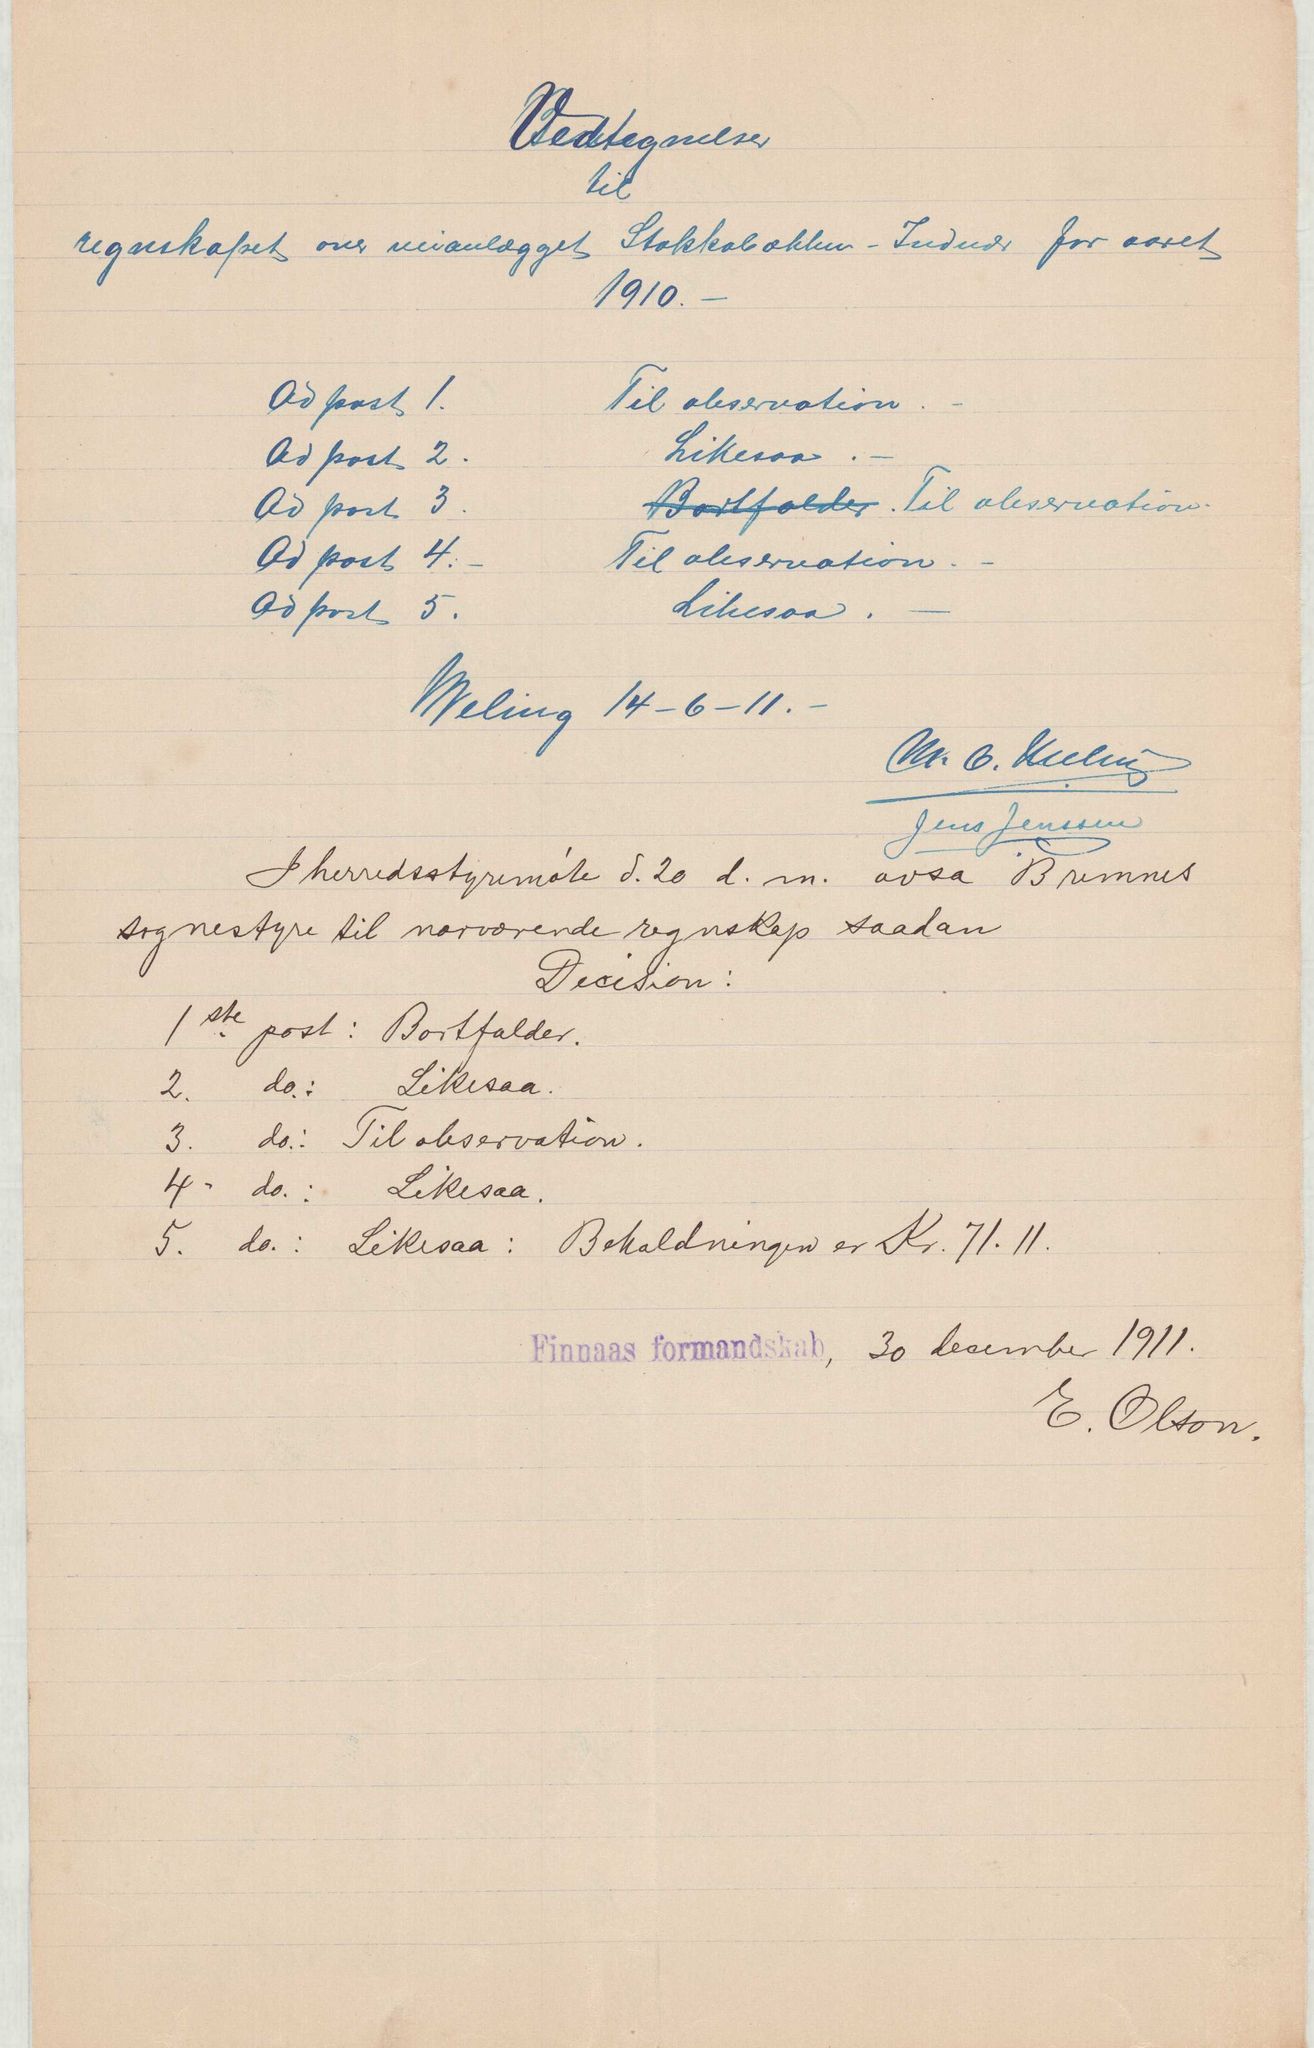 Vedtegnelser
til
regnskapet over veianlægget Stokkabækken - Indvær for aaret
1910. -
Ad post 1. Til observation. -
Ad post 2. Likesaa. -
Ad post 3. Bortfalder. Til observation.
Ad post 4. - Til observation. -
Ad post 5. Likesaa. -
Meling 14-6-11. -
M. O. Meling
Jens Jenssen
I herredsstyremøte d. 20 d. m. avsa Bremnes
sognestyre til nærværende regnskap saadan
Decision:
1ste post: Bortfalder.
2. do.: Likesaa.
3. do.: Til observation.
4 - do.: Likesaa.
5. do.: Likesaa: Beholdningen er Kr. 71.11.
Finnaas formandskab, 30 desember 1911.
E. Olson.